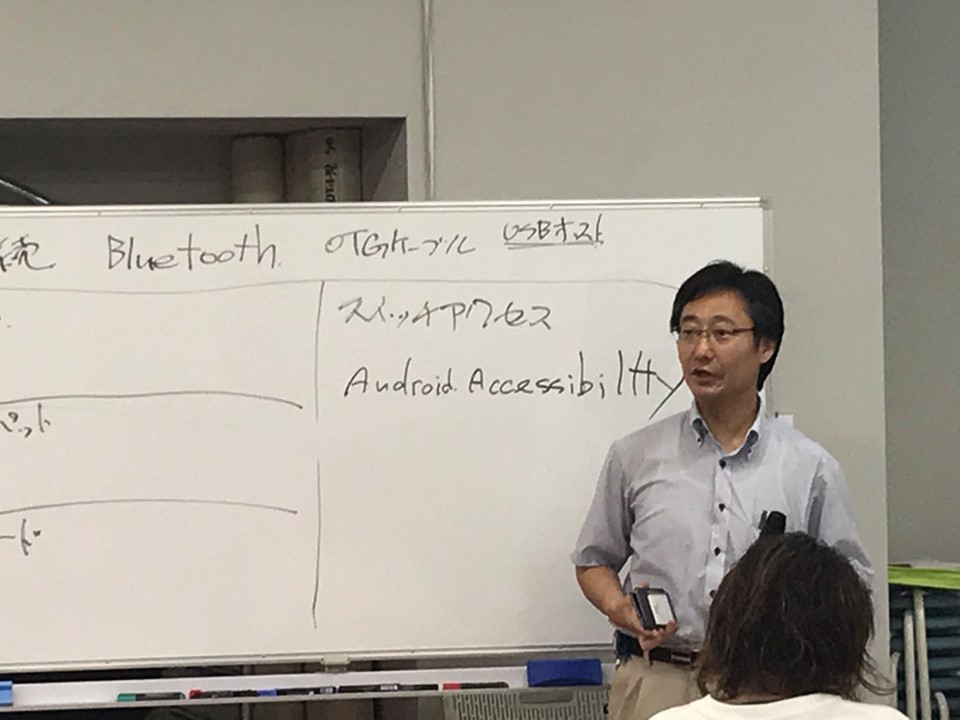 続 Bluetooth. OTGケーブル USBホスト
スイッチアクセス
Android Accessibility
ペット
ード